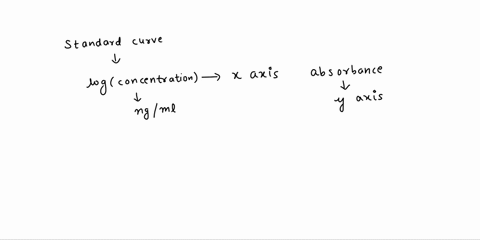 Standard curve
↓
log(concentration) → x axis absorbance
↓ ↓
ng/ml y axis